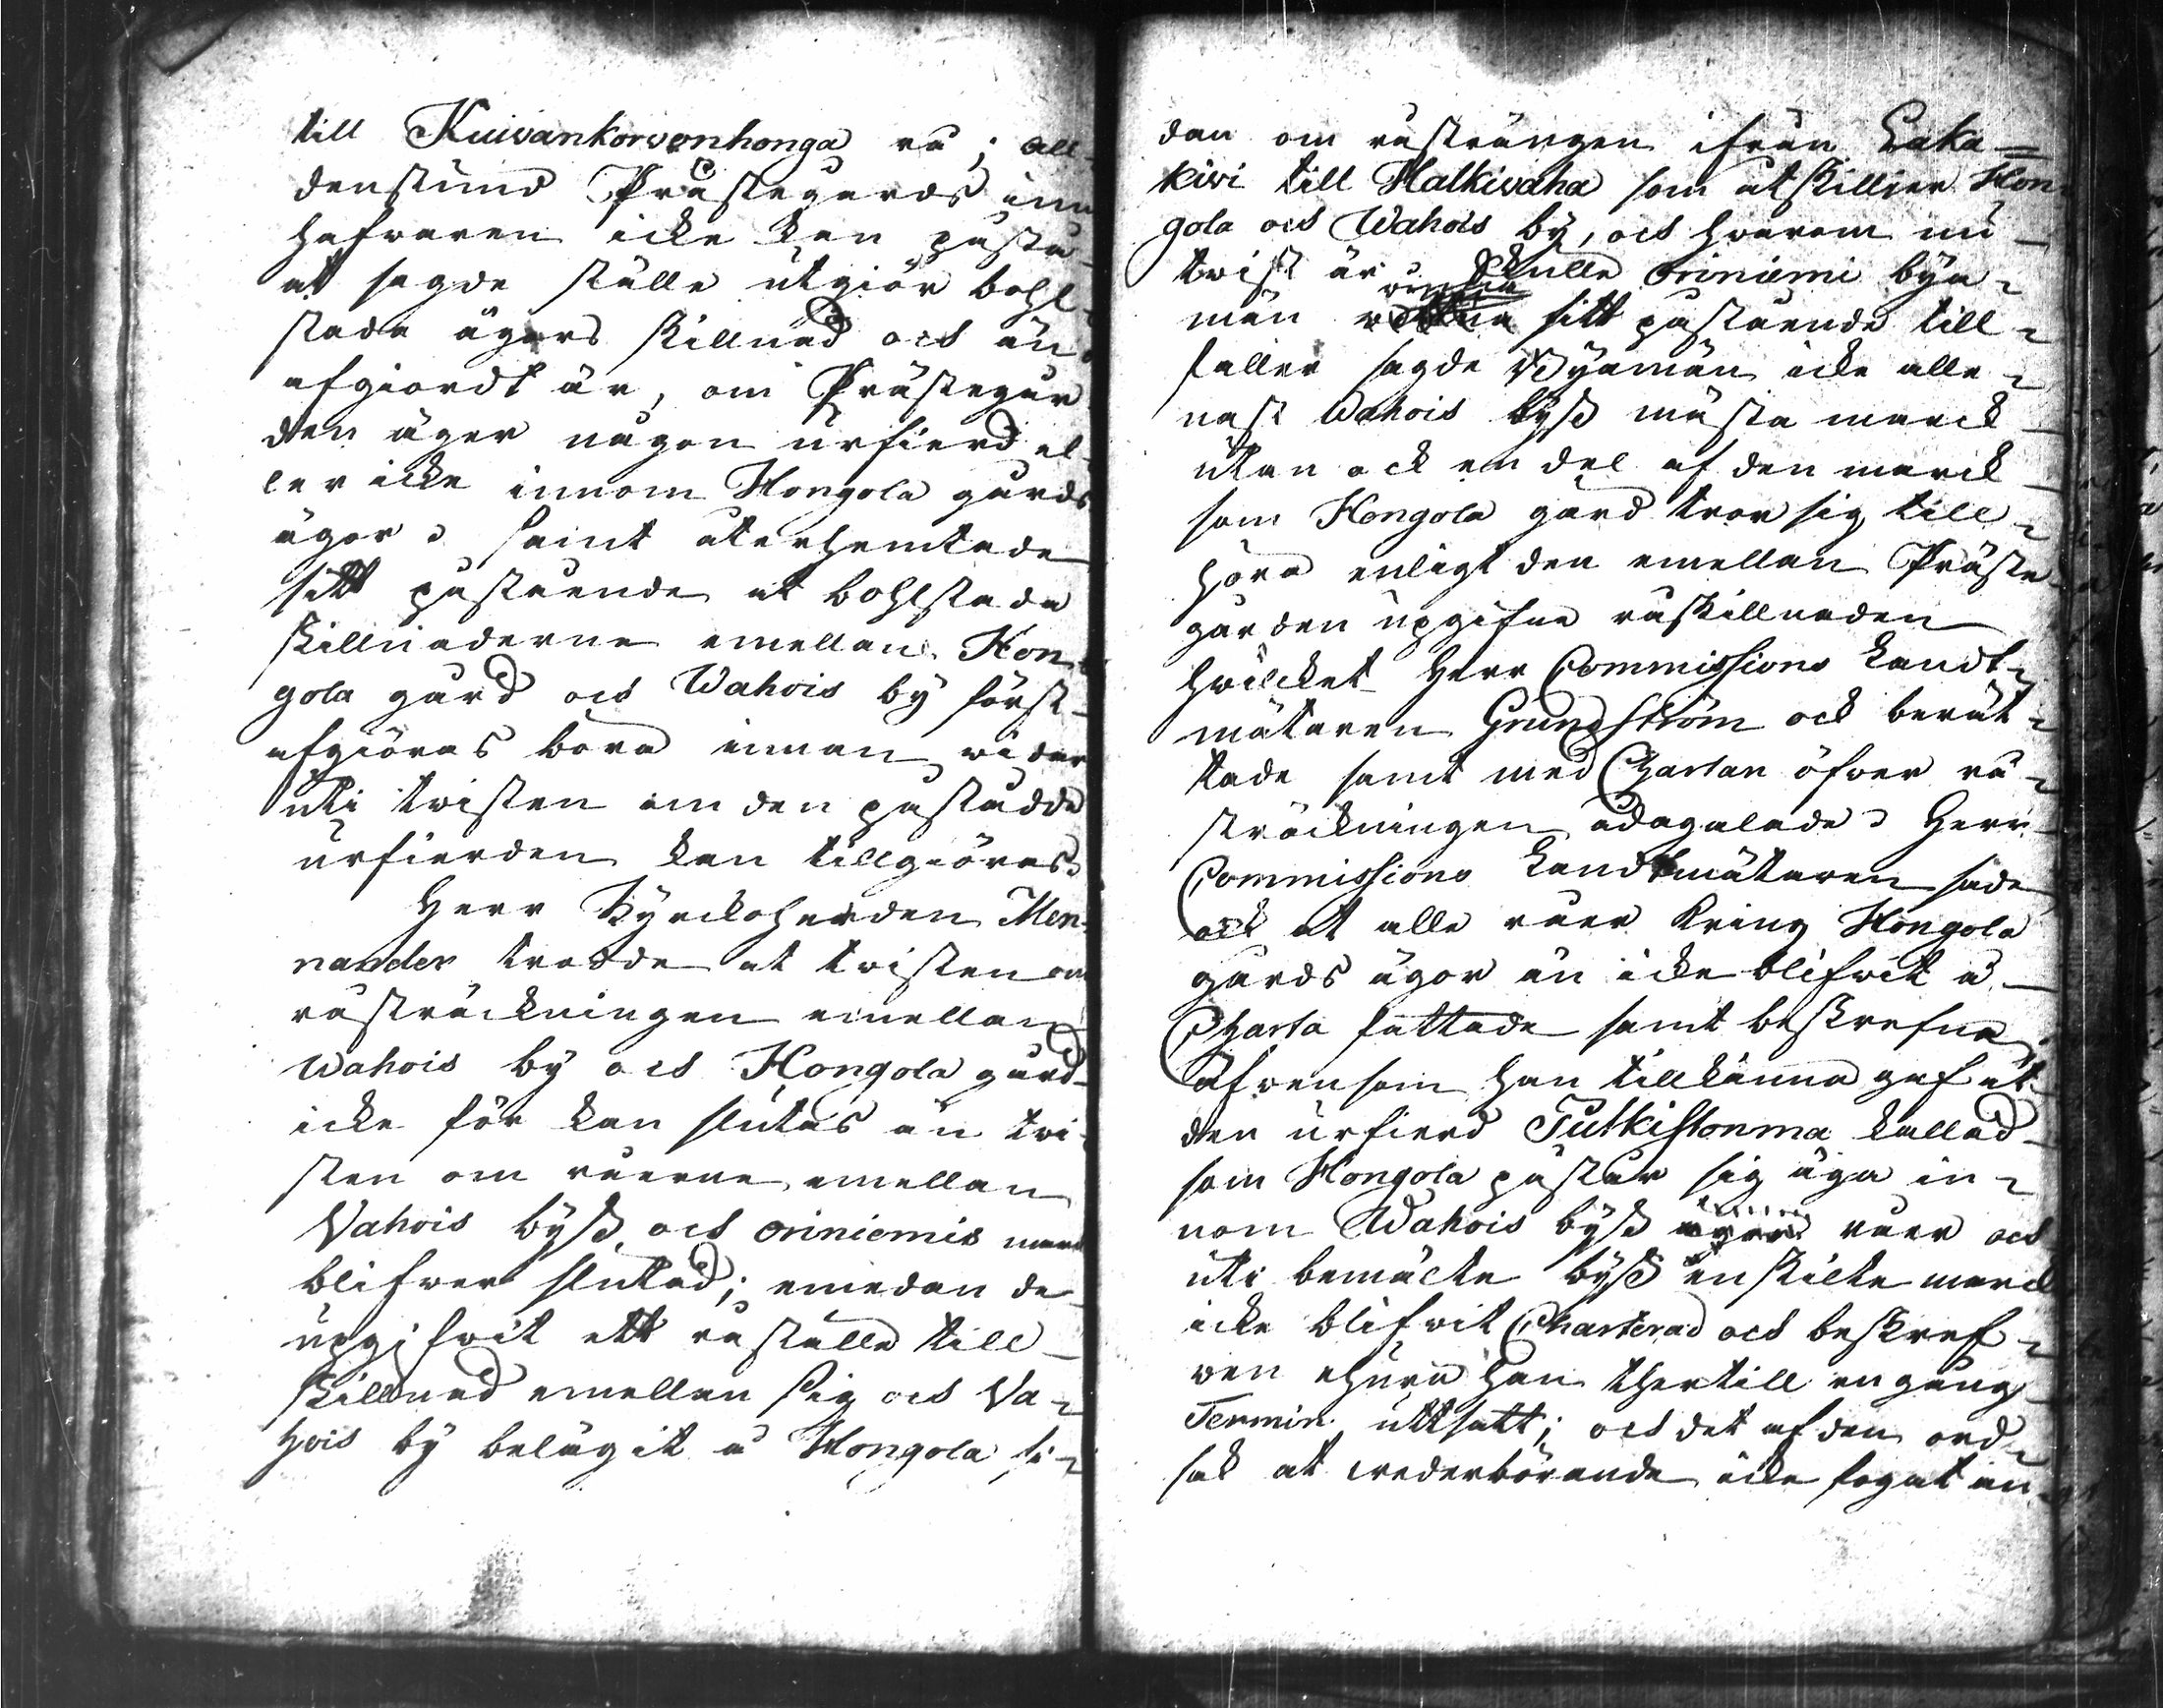 till Kuivankorvenhonga rå; all-
denstund Prästegårds inne
hafwaren icke kan påstå
at sagde ställe utgiör bohl-
stada ägors skillnad och än
afgiordt är, om Prästegår
den äger någon urfierd el-
ler icke innom Hongola gårds
ägor samt återhemtade
sitt påstående at bohlstada
skillnaderne emellan Hon-
gola gård och Wahois by först
afgiöras böra innan widare
uti twisten om den påstådde
urfierden kan tillgiöras.
Herr Kyrckoherden Men-
nander trodde at twisten om
råsträckningen emellan
Wahois by och Hongola gård
icke för kan slutas än twi-
sten om råerne emellan
Vahois byß och Oriniemis marck
blifwer slutad; emedan de
upgifwit ett råställe till
skillnad emellan sig och Va-
hois by belägit å Hongola si-
dan om rästrängen ifrån Laka-
kivi till Halkivaha som åtskillier Hon-
gola och Wahois by, och hwarom nu
twist är. Skulle Oriniemi bya-
män winna sitt påstående till-
faller sagde Byamän icke alle-
nast Wahois byß mästa marck
utan ock en del af den marck
som Hongola gård tror sig till-
höra enligt den emellan Präste
gården upgifne råskillnaden
hwilcket Herr Commissions Landt-
mätaren Grundström ock berät-
tade samt med Chartan öfwer rå-
sträckningen ådagalade. Herr
Commissions Landtmätaren sade
ock at alle råer kring Hongola
gårds ägor än icke blifwit å
Charta fattade samt beskrefne
äfwensom han tillkänna gaf at
den urfierd Tutkistonma kallad
som Hongola påstår sig äga in-
nom Wahois byß ägor råer och
uti bemälte byß enskilte marck
icke blifwit Charterad och beskref-
wen ehuru han thertill en gång
Termin uttsatt; och det af den ord-
sak at wederbörande icke fogat an-